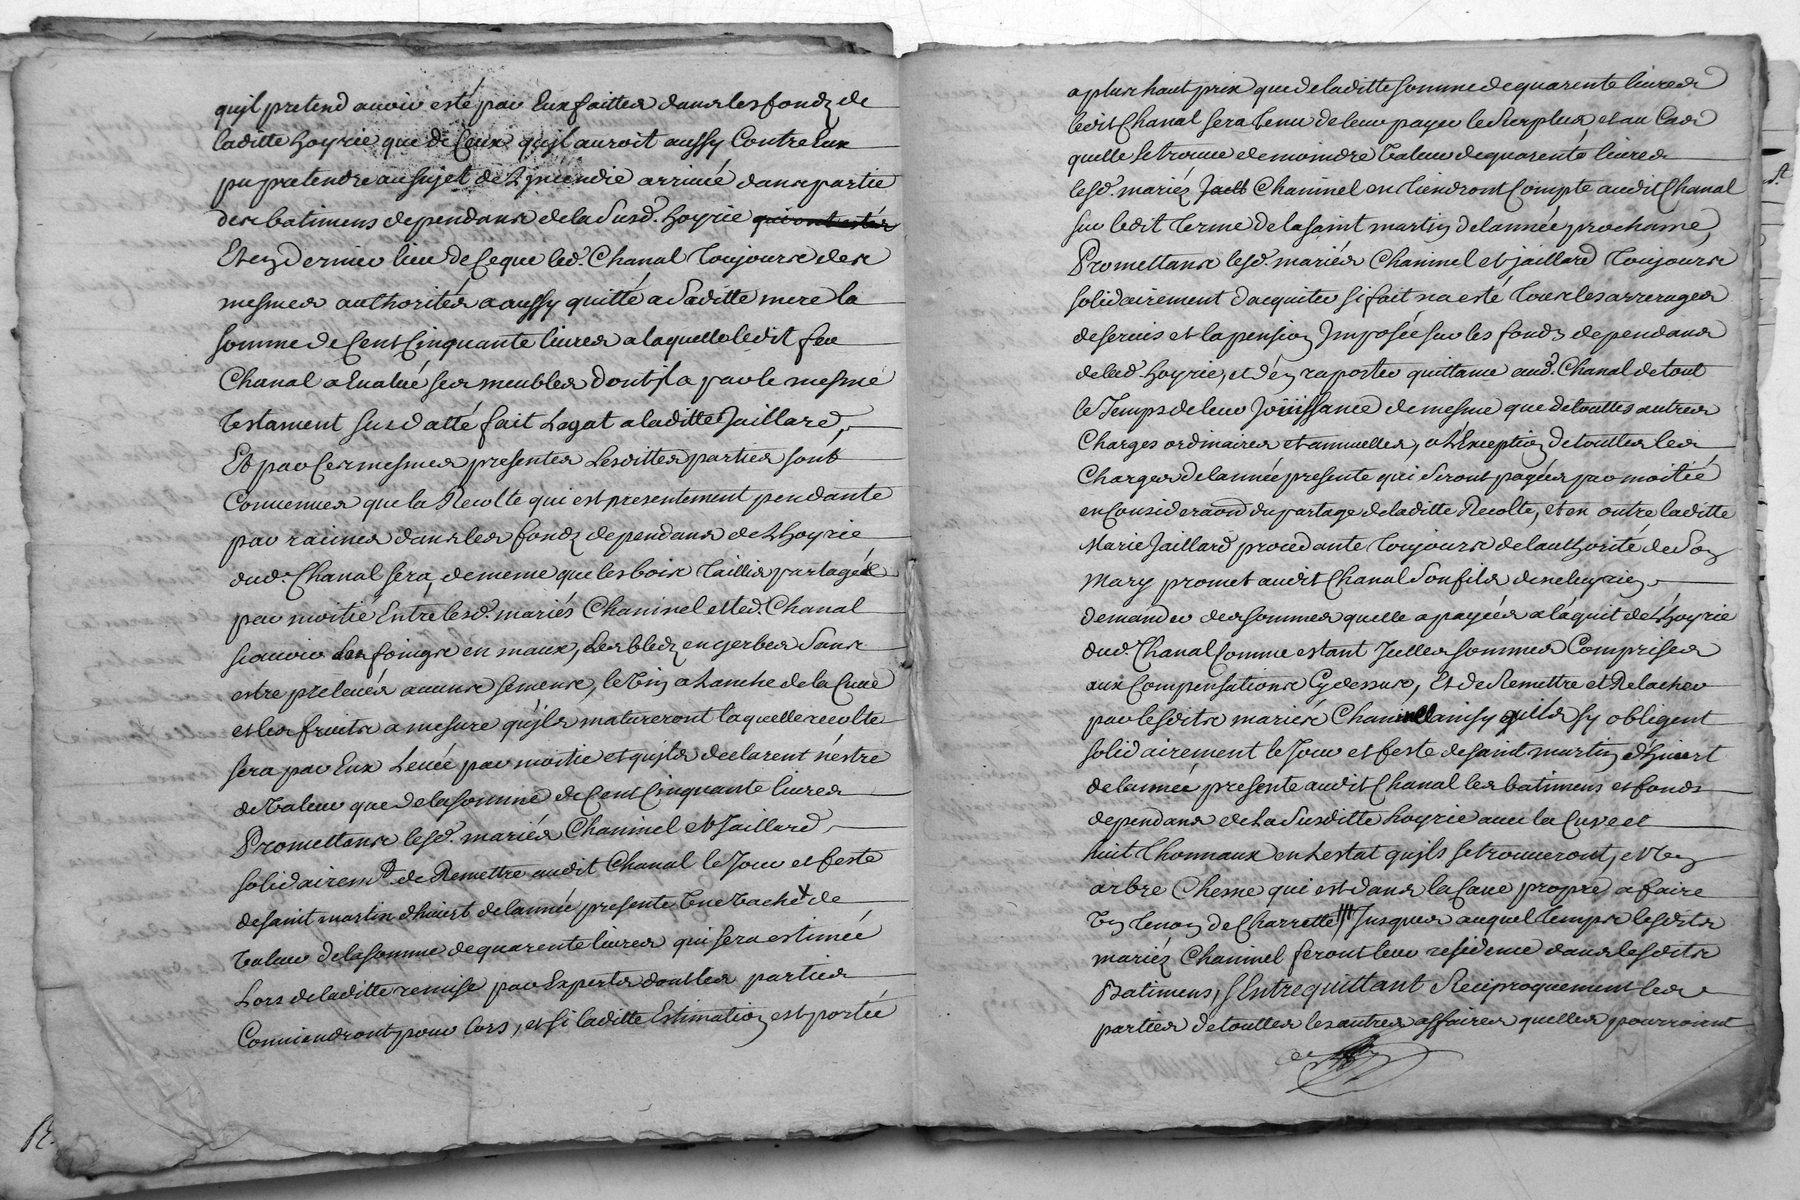 qujl pretend auoir esté par Eux faittes dans les fondz de
laditte hoyrie que de Ceux qujl auroit aussy Contre Eux
pu pretendre au sujet de L jncendie arriué dans partie
des batimens dependans de la Susd.e hoyrie qui ont estés
Et en dernier lieu de Ce que led. Chanal Toujours des
mesmes authorités a aussy quitté a Saditte mere la
somme de Cent Cinquante liures a laquelle ledit feu
Chanal a Eualué ses meubles dont jl a par le mesme
Testament susdatté fait Legat a laditte Jaillard,
Et par Ces mesmes presentes Lesdittes parties sont
Conuenues que la Recolte qui est presentement pendante
par racines dans les fondz dependans de Lhoyrie
dud. Chanal sera, de meme que les bois Taillis partagée
par moitié Entre lesd. mariés Chaninel et led. Chanal
scauoir Les foings en maux, Les bledz en gerbes Sans
estre preleués aucuns semens, le Vin a Lanche de la Cuue
et les fruits a mesure qujls matureront laquelle recolte
sera par Eux Leuée par moitie et qujls declarent n'estre
de Valeur que de la somme de Cent Cinquante liures
Promettans lesd. mariés Chaninel et Jaillard
solidairemt. de Remettre audit Chanal le Jour et feste
de saint martin dhiuert de lannée presente Vne Vache de
Valeur de la somme de quarente liures qui sera estimée
Lors de laditte remise par Experts dont les parties
Conuiendront pour lors, et si laditte Estimation est portée
a plus haut prix que de laditte somme de quarente liures
ledit Chanal sera Tenu de leur payer le Surplus et au Cas
quelle se trouue de moindre Valeur de quarente liures
lesd. mariéz Chaninel en Tiendront Compte audit Chanal
sur ledit Terme de la saint martin de lannée prochaine,
Promettans lesd. mariés Chaninel et jaillard Toujours
solidairement dacquiter si fait na esté Tous les arrerages
de seruis et la pension Jmposée sur les fondz dependans
de lad. hoyrie, et d'en raporter quittance aud. Chanal de tout
le Temps de leur Joüissance de mesme que de touttes autres
Charges ordinaires et annuelles, a L'Exception de touttes les
Charges de lannée presente qui Seront payées par moitié
en Consideraon du partage de laditte Recolte, et en outre laditte
Marie Jaillard procedante Toujours de lauthorité de Son
Mary promet audit Chanal Son fils de ne luy rien
demander des sommes quelle a payées a láquit de Lhoyrie
dud. Chanal Comme estant Jcelles sommes Comprises
aux Compensations Cydessus, Et de Remettre et Relacher
par lesdits mariés Chaninel ainsy quils sy obligent
solidairement le Jour et feste de saint martin dhiuert
de lannée presente audit Chanal les batimens et fonds
dependans de La Susditte hoyrie auec la Cuve et
huit Thonnaux en Lestat qujls se trouueront, et Vn
arbre Chesne qui est dans la Caue propre a faire
Vn Tenon de Charrette Jusques auquel Temps lesdits
mariéz Chaninel feront leur residence dans lesdits
Batimens, SEntrequittant Reciproquement les
parties de touttes les autres affaires quelles pourroient